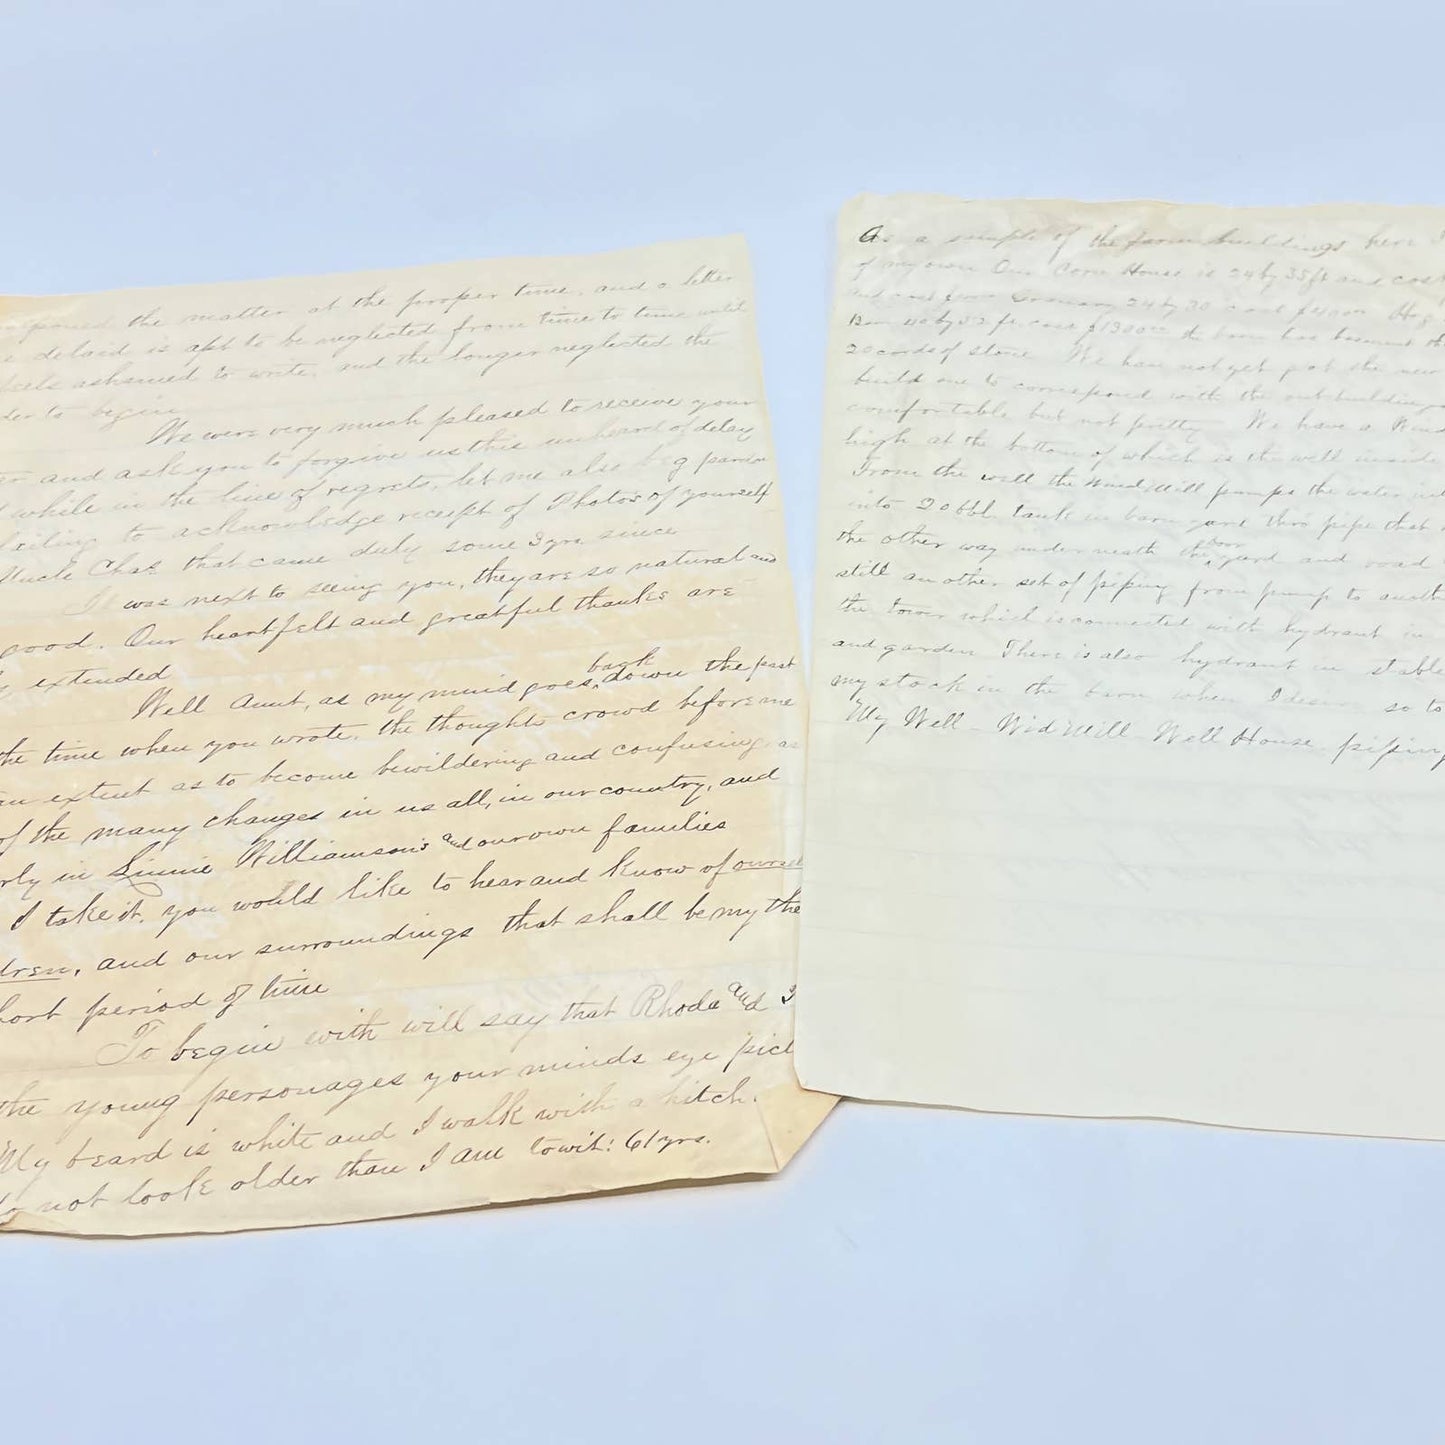 the matter at the proper time, and a letter
delaid is apt to be neglected from time to time until
feels ashamed to write, and the longer neglected the
to begin
We were very much pleased to receive your
and ask you to forgive us this unheard of delay
while in the line of regrets, let me also beg pardon
to acknowledge receipt of Photos of yourself
Uncle Chas that came duly some 3 yrs since
It was next to seeing you, they are so natural and
good. Our heartfelt and greatful thanks are
extended
Well Aunt, as my mind goes back down the past
the time when you wrote, the thoughts crowd before me
an extent as to become bewildering and confusing, as
of the many changes in us all, in our country, and
in Linnie Williamson's and our own families
I take it, you would like to hear and know of
and our surroundings that shall be my
period of time
To begin with will say that Rhoda and
the young personages your minds eye
My beard is white and I walk with a hitch.
not look older than I am towit: 61 yrs.
As a sample of the farm buildings here
of my own Our Corn House is 24 by 35 ft and cost
and Granary 24 by 30 cost Hog
Barn 40 by 52 ft. cost $1300.00 the barn has basement
20 cords of stone We have not yet got the new
build one to correspond with the out buildings
comfortable but not pretty We have a
high at the bottom of which is the well inside
From the well the Wind Mill pumps the water
into 20 bbl. tank in barn yard thro pipe that
the other way under neath the door yard and road
still an other set of piping from pump to
the tower which is connected with hydrant in
and garden There is also hydrant in stable
my stock in the barn when I desire so to
My Well - Wid Mill - Well House,